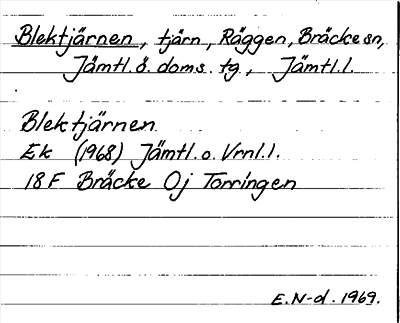 Blektjärnen, tjärn, Räggen, Bräcke sn,
Jämtl. ö. doms. tg, Jämtl. l.
Blektjärnen
Ek (1968) Jämtl. o. Vrnl. l.
18 F Bräcke Oj Torringen
E. N-d. 1969.